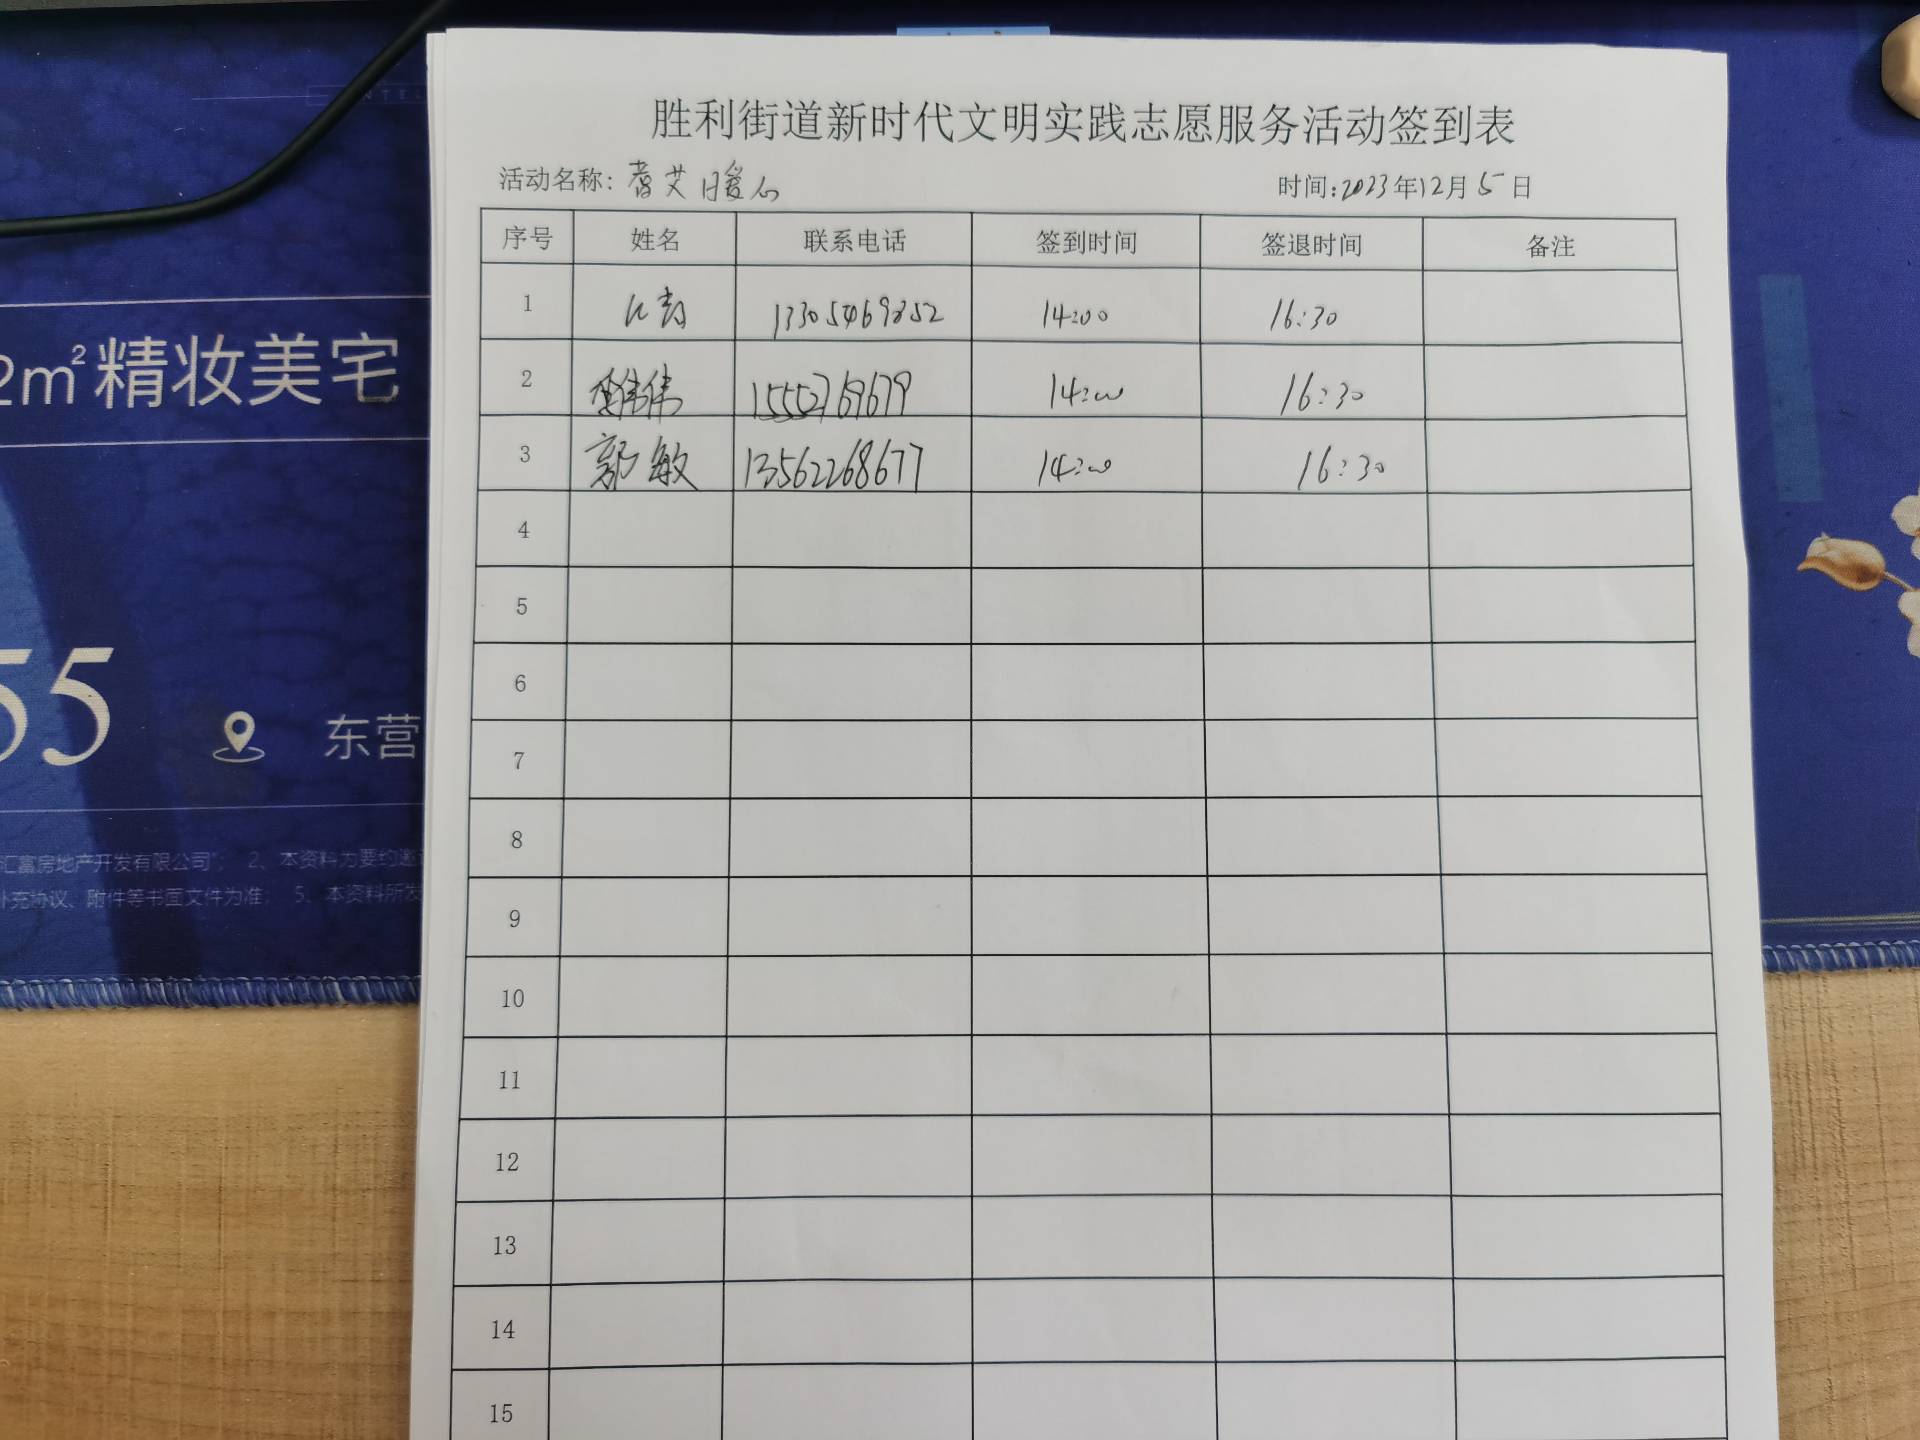 胜利街道新时代文明实践志愿服务活动签到表
活动名称: 艾暖心 时间:2023年12月5日
序号 姓名 联系电话 签到时间 签退时间 备注
1 13305469852 14:00 16:30
2 伟伟 15552769679 14:00 16:30
3 郭敏 13562268677 14:00 16:30
4
5
6
7
8
9
10
11
12
13
14
15
2m²精妆美宅
55
东营
汇富房地产开发有限公司”； 2、本资料为要约邀
补充协议、附件等书面文件为准； 5、本资料所发